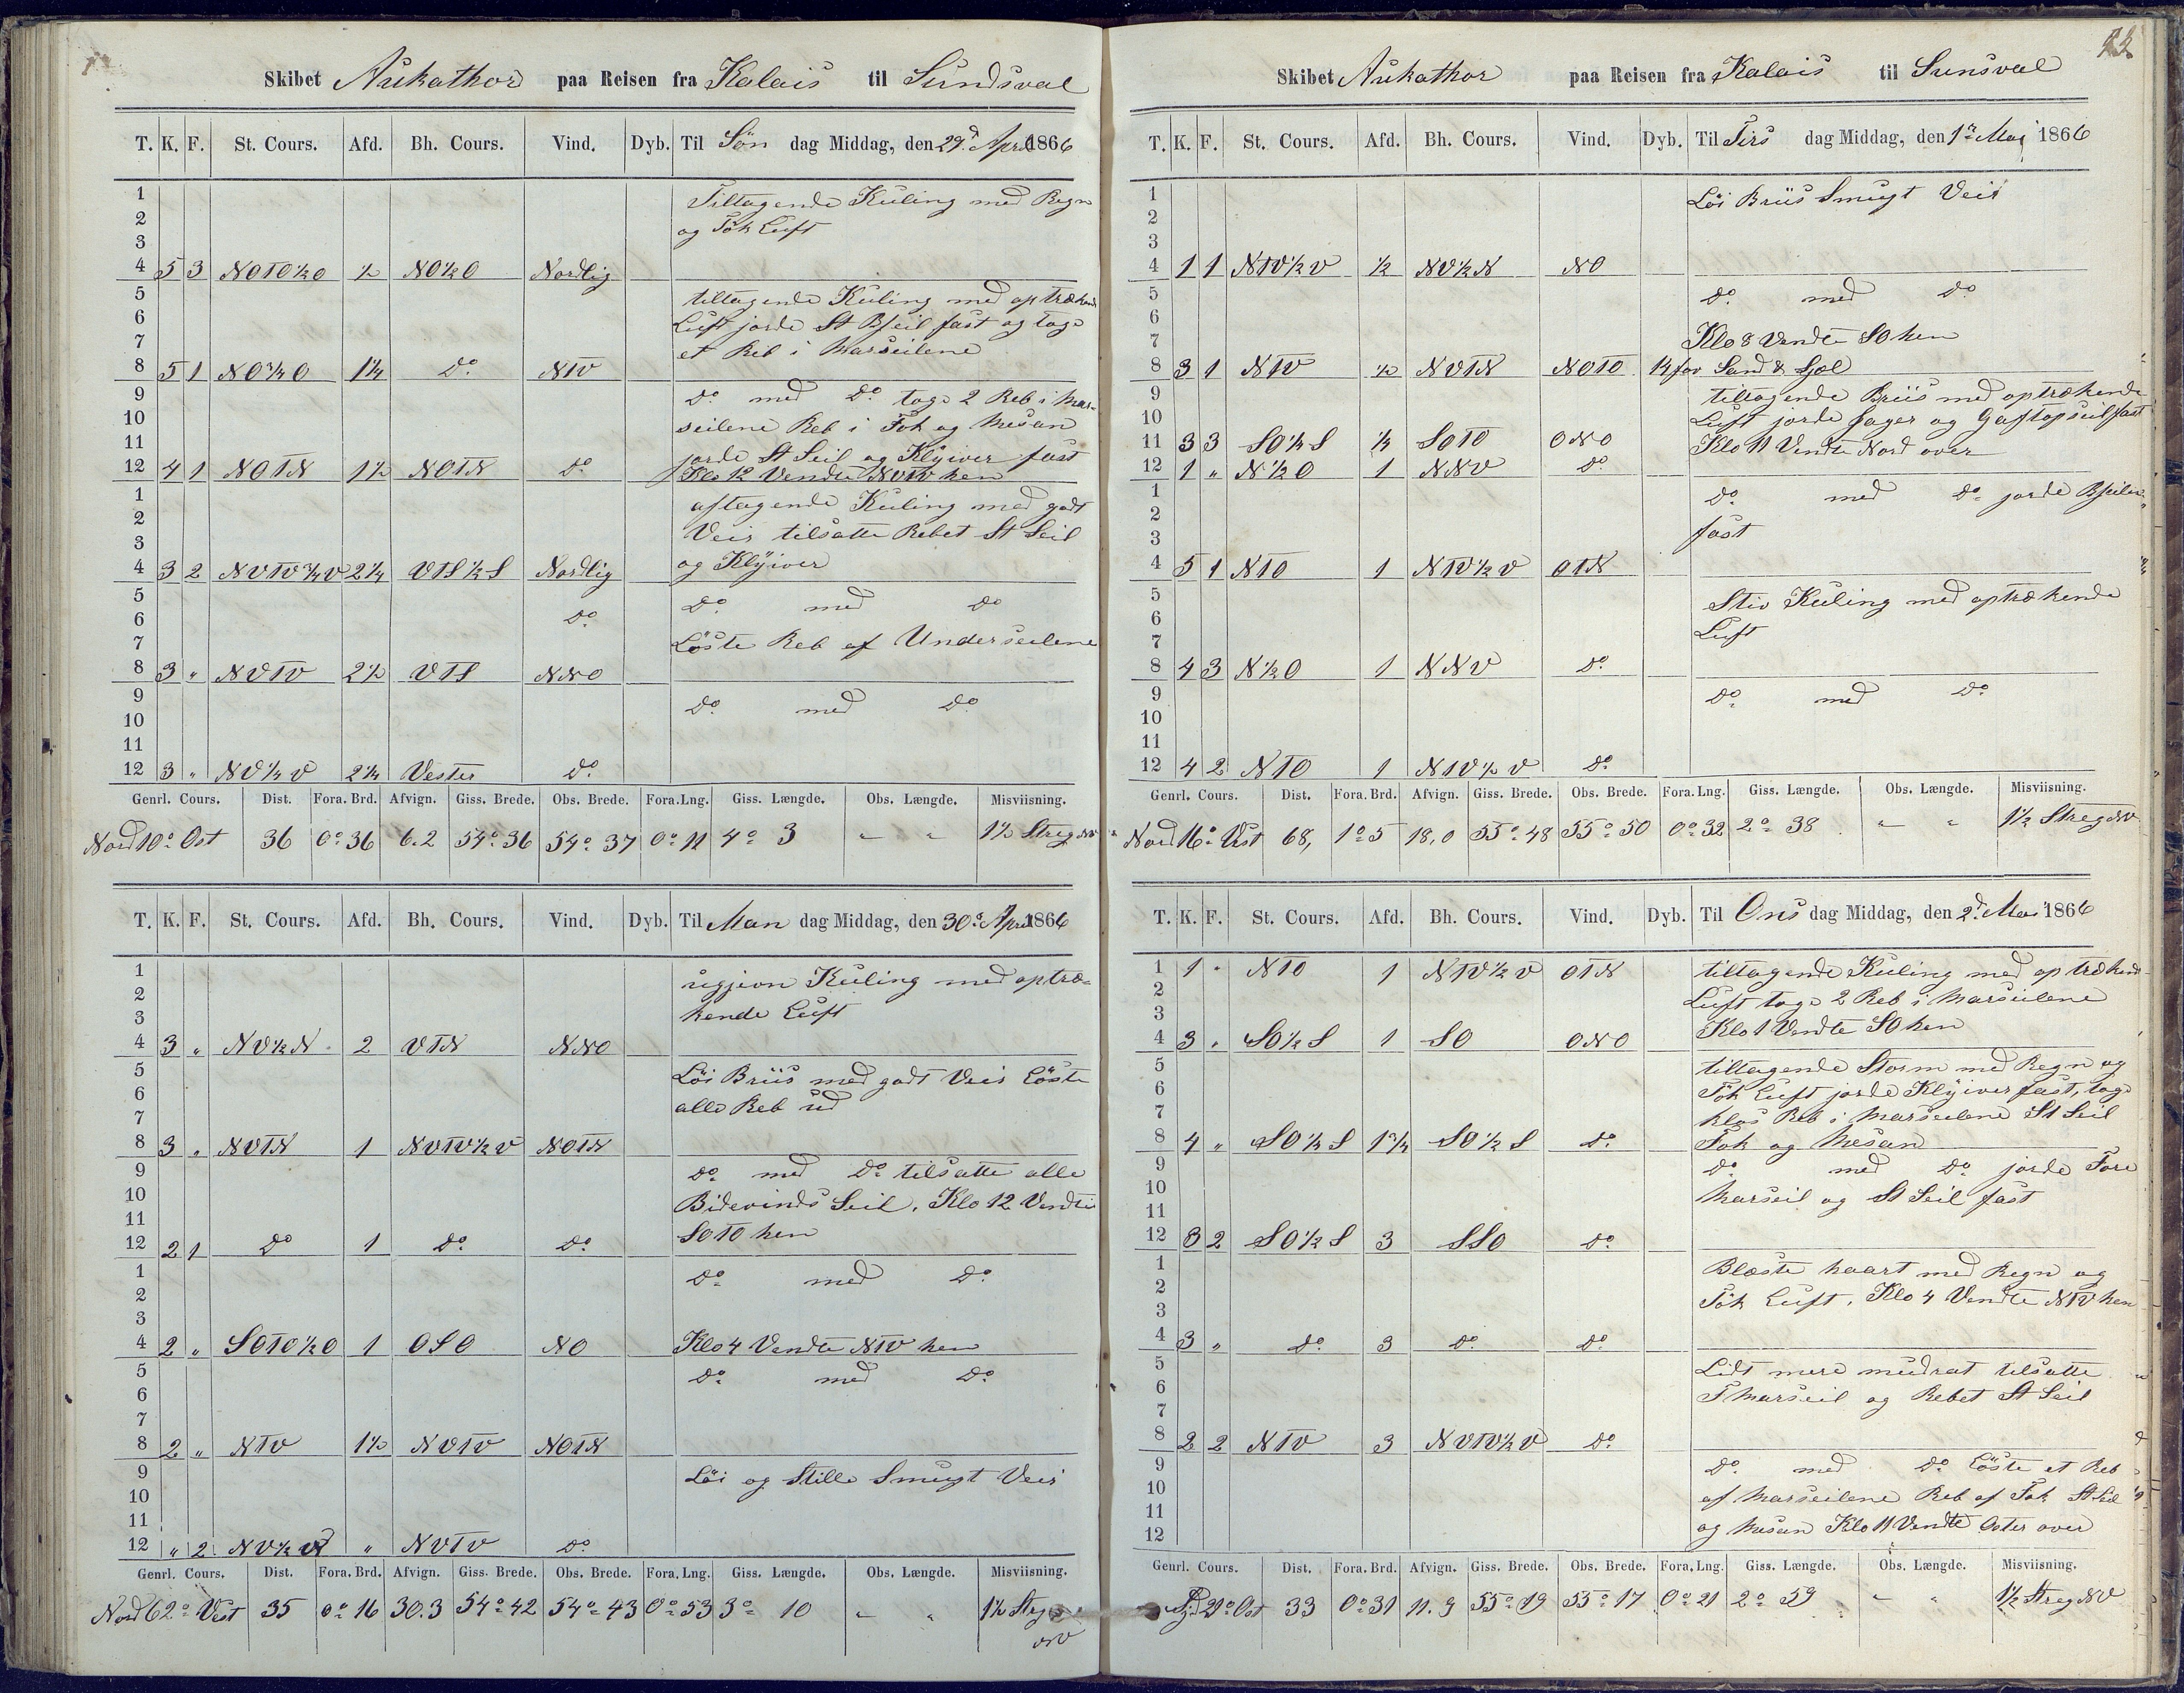 Skibet Aukathor paa Reisen fra Kalais til Sundsval
T. K. F. St. Cours. Afd. Bh. Cours. Vind. Dyb. Til Søn dag Middag, den 29d April 1866
1 Tiltagende Kuling med Regn
2 og Tÿk Luft
3
4 5 3 NOTO½O ½ NO½O Nordlig
5 tiltagende Kuling med optrækende
6 Luft jorde St Bseil fast og toge
7 et Reb i Marseilene
8 5 1 NO¾O 1¼ Do NTV
9 Do med Do toge 2 Reb i Mar-
10 seilene Reb i Fok og Mesan
11 jorde St Seil og Klÿiver fast
12 4 1 NOTN 1½ NOTN Do Klo 12 Vendte NVTV hen
1 aftagende Kuling med godt
2 Veir tilsatte Rebet St Seil
3
4 3 2 NVTV¾V 2¼ VTS½S Nordlig og Klÿiver
5 Do med Do
6 Do
7 Löste Reb af Underseilene
8 3 " NVTV 2½ VTS NNO
9 Do med Do
10
11
12 3 " NV¼V 2¼ Vester Do
Genrl. Cours. Dist. Fora. Brd. Afvign. Giss. Brede. Obs. Brede. Fora. Lng. Giss. Længde. Obs. Længde. Misviisning.
Nord 10o Ost 36 0o 36 6.2 54o 36 54o 37 0o 11 4o 3 " " 1½ Streg NV
T. K. F. St. Cours. Afd. Bh. Cours. Vind. Dyb. Til Man dag Middag, den 30d April 1866
1 ugjevn Kuling med optræ-
2 kende Luft
3
4 3 " NV½N 2 VTN NNO
5 Löi Briis med godt Veir Löste
6 alle Reb ud
7
8 3 " NVTN 1 NVTV½V NOTN
9 Do med Do tilsatte alle
10 Bidevinds Seil, Klo 12 Vendte
11 SOTO hen
12 2 1 Do 1 Do Do
1 Do med Do
2
3
4 2 " SOTO½O 1 OSO NO Klo 4 Vendte NTV hen
5 Do med Do
6
7
8 2 " NTV 1½ NVTV NOTN
9 Löi og Stille Smugt Veir
10
11
12 " 2 NV½V " NVTV Do
Genrl. Cours. Dist. Fora. Brd. Afvign. Giss. Brede. Obs. Brede. Fora. Lng. Giss. Længde. Obs. Længde. Misviisning.
Nord 62o Vest 35 0o 16 30.3 54o 42 54o 43 0o 53 3o 10 " " 1½ Streg
NV
Skibet Aukathor paa Reisen fra Kalais til Sunsval
T. K. F. St. Cours. Afd. Bh. Cours. Vind. Dyb. Til Tirs dag Middag, den 1r Mai 1866
1 Löi Briis Smugt Veir
2
3
4 1 1 NTV½V ½ NV½N NO
5 Do med Do
6
7 Klo 8 Vendte SO hen
8 3 1 NTV ½ NVTN NOTO 14 fav Sand & Sjæl
9 tiltagende Briis med optrækende
10 Luft jorde Jager og Gaftopseil fast
11 3 3 SO¼S ¼ SOTO ONO Klo 11 Vendte Nord over
12 1 " N½O 1 NNV Do
1 Do med Do jorde Bseilene
2 fast
3
4 5 1 NTO 1 NTV½V OTN
5 Stiv Kuling med optrækende
6 Luft
7
8 4 3 N½O 1 NNV Do
9 Do med Do
10
11
12 4 2 NTO 1 NTV½V Do
Genrl. Cours. Dist. Fora. Brd. Afvign. Giss. Brede. Obs. Brede. Fora. Lng. Giss. Længde. Obs. Længde. Misviisning.
Nord 16o Vest 68, 1o 5 18,0 55o 48 55o 50 0o 32 2o 38 " " 1½ Streg NV
T. K. F. St. Cours. Afd. Bh. Cours. Vind. Dyb. Til Ons dag Middag, den 2d Mai 1866
1 1 " NTO 1 NTV½V OTN tiltagende Kuling med optrækende
2 Luft toge 2 Reb i Marseilene
3 Klo 1 Vendte SO hen
4 3 " SO½S 1 SO ONO
5 tiltagende Storm med Regn og
6 Tÿk Luft jorde Klÿiver fast, toge
7 klos Reb i Marseilene St Seil
8 4 " SO½S 1¾ SO½S Do Fok og Mesan
9 Do med Do jorde Fore
10 Marseil og St Seil fast
11
12 3 2 SO½S 3 SSO Do
1 Blæste haart med Regn og
2 Tÿk Luft, Klo 4 Vendte NTV hen
3
4 3 " Do 3 Do Do
5 Lidt mere mudrat tilsatte
6 F Marseil og Rebet St Seil
7
8 2 2 NTV 3 NVTV½V Do
9 Do med Do Löste et Reb
10 af Marseilene Reb af Fok St Seil
11 og Mesan Klo 11 Vendte Oster over
12
Genrl. Cours. Dist. Fora. Brd. Afvign. Giss. Brede. Obs. Brede. Fora. Lng. Giss. Længde. Obs. Længde. Misviisning.
21o Ost 33 0o 31 11.9 55o 19 55o 17 0o 21 2o 59 " " 1½ Streg NV